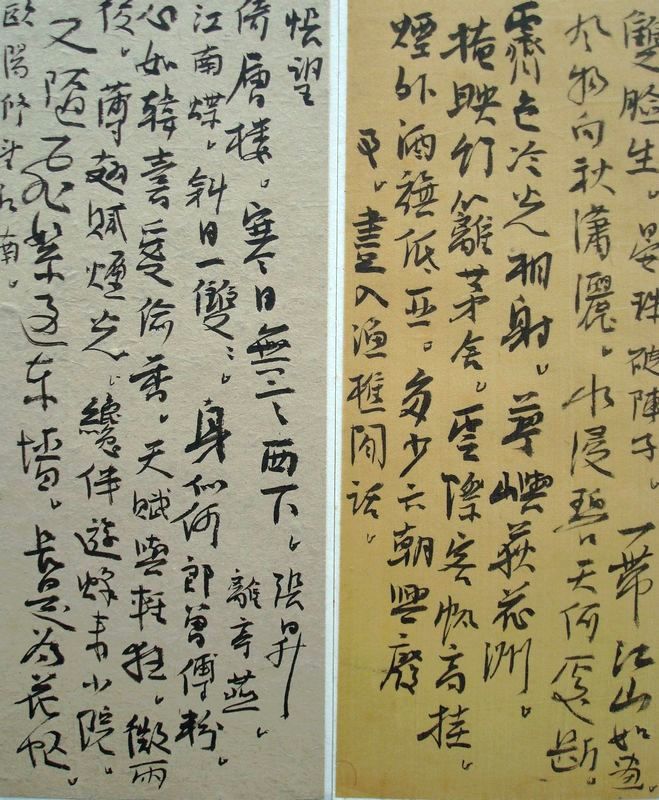 雙臉生。晏殊破陣子。一帶江山如畫。
风物向秋瀟灑。水浸碧天何處斷
霽色冷光相射。蓼嶼荻花洲。
掩映竹籬茅舍。雲際客帆高挂。
煙外酒旗低亞。多少六朝興廢
事。盡入漁樵閒話。
悵望
倚層樓。寒日無言西下。張昇
離亭燕。
江南蝶。斜日一雙雙。身似何郎曾傅粉。
心如韓壽愛偷香。天賦與輕狂。微雨
後。薄翅膩煙光。纔伴遊蜂來小院。
又随飛絮過東墻。長是為花忙。
歐陽修望江南。